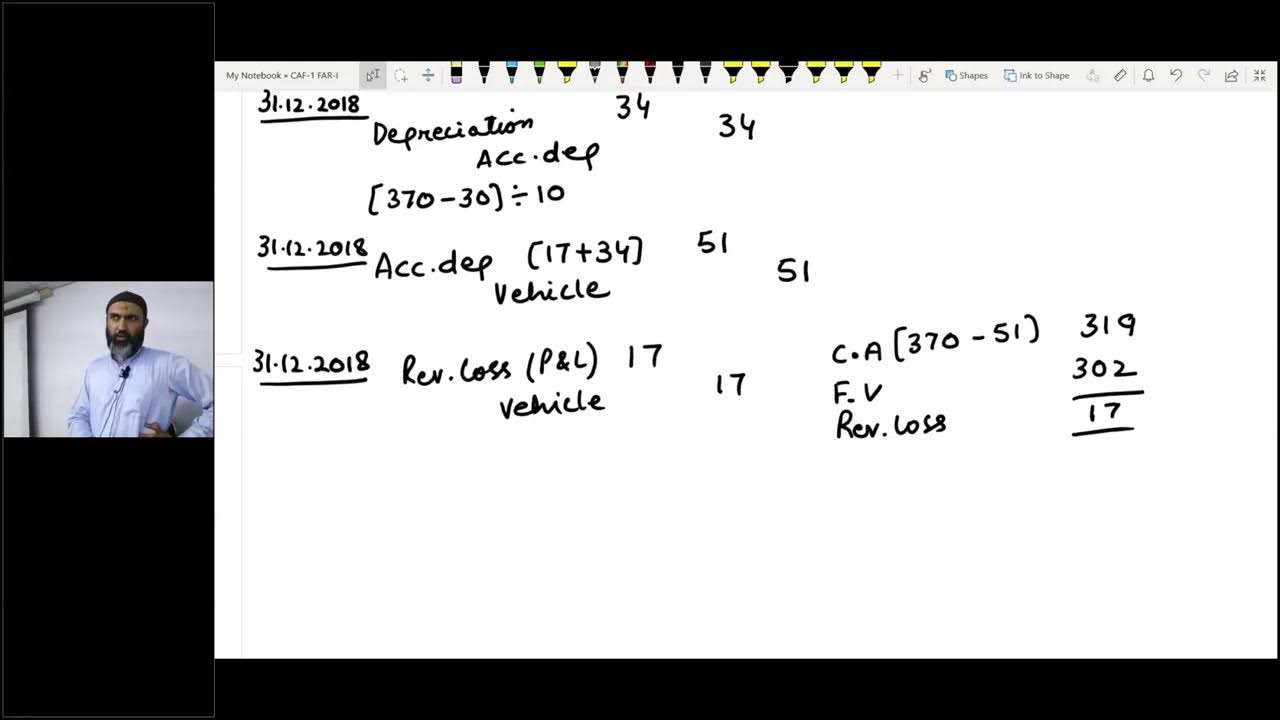 My Notebook » CAF-1 FAR-I
Shapes
Ink to Shape
31.12.2018
Depreciation 34
Acc.dep 34
[370-30]÷10
31.12.2018 Acc.dep [17+34] 51
Vehicle 51
31.12.2018 Rev.loss (P&L) 17
Vehicle 17
C.A [370-51] 319
F.V 302
Rev.loss 17